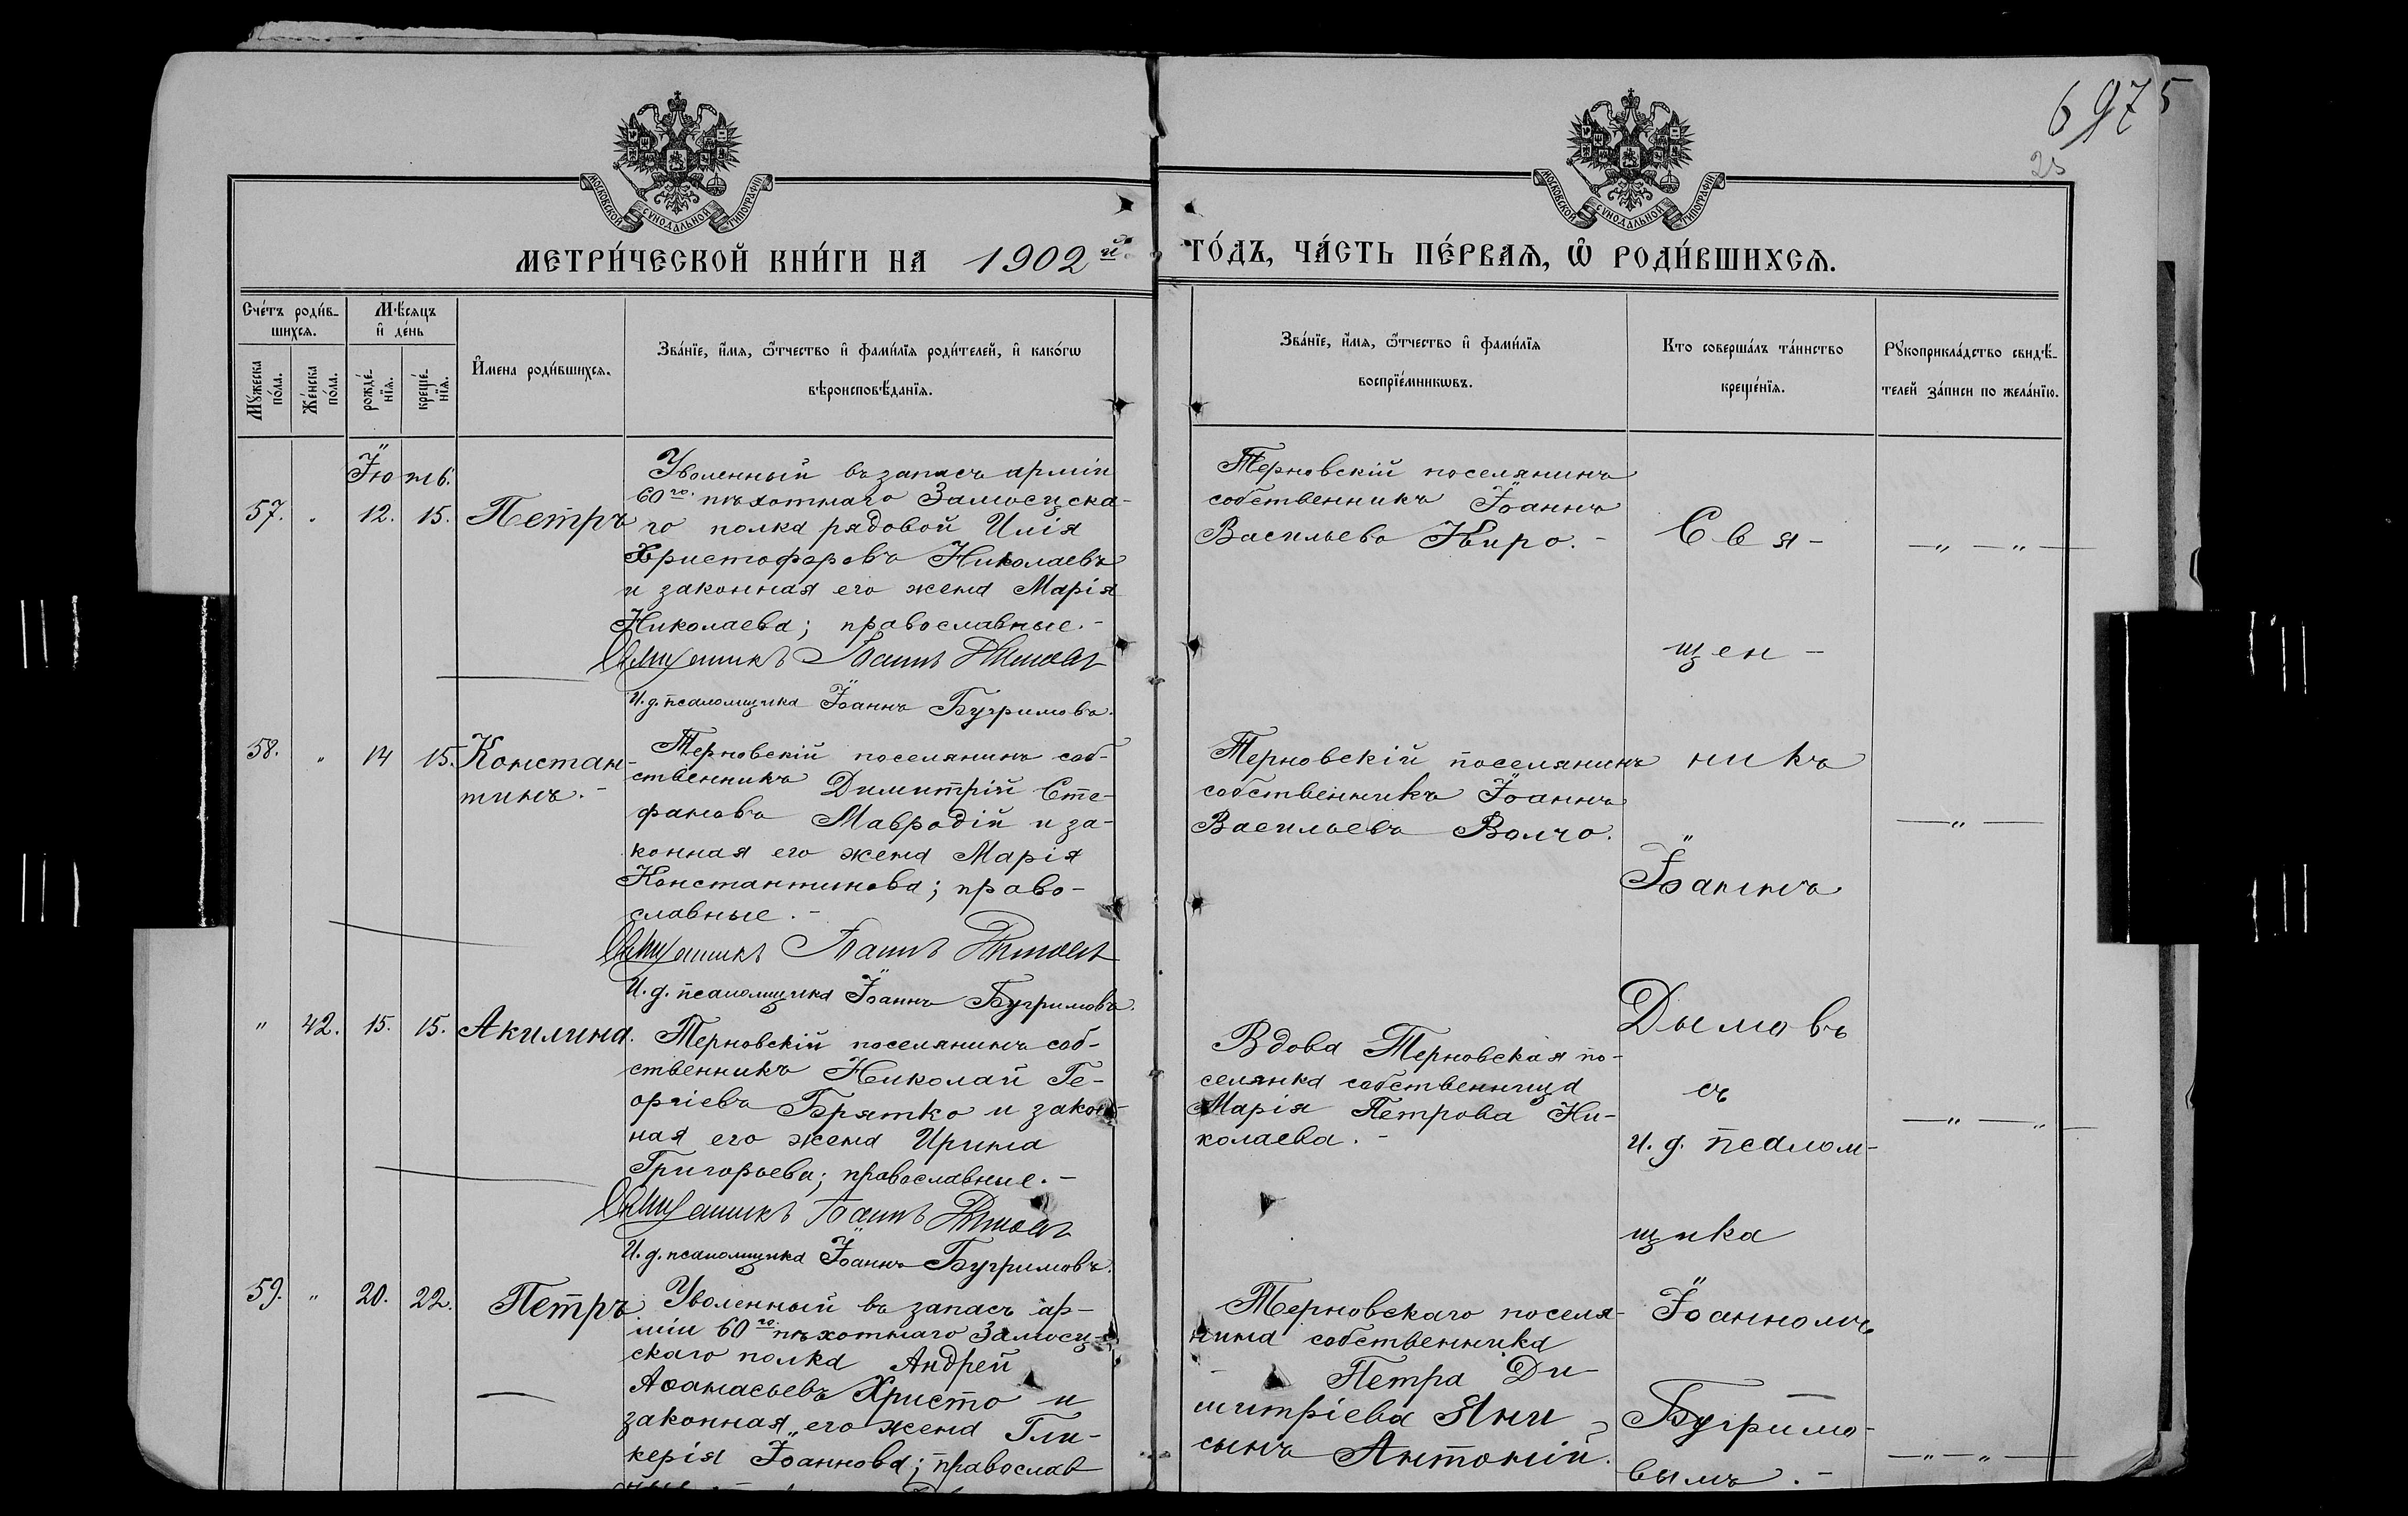 6975
25
МОСКОВСКОЙ СѴНОДАЛЬНОЙ ТИПОГРАФІИ
МОСКОВСКОЙ СѴНОДАЛЬНОЙ ТИПОГРАФІИ
МЕТРИ́ЧЕСКОЙ КНИ́ГИ НА 1902 й
ГО́ДЪ, ЧА́СТЬ ПЕ́РВАѦ, Ѽ РОДИ́ВШИХСѦ.
Сче́тъ роди́в-
шихсѧ.
Мѣ́сѧцъ
и҆ де́нь
Мꙋ́жеска
по́ла.
Же́нска
по́ла.
рожде́-
нїѧ.
креще́-
нїѧ.
И҆мена роди́вшихсѧ.
Зва́нїе, и҆́мѧ, ѻ҆́тчество и҆ фами́лїѧ роди́телей, и҆ како́гѡ
вѣроисповѣ́данїѧ.
Зва́нїе, и҆́мѧ, ѻ҆́тчество и҆ фами́лїѧ
воспрїе́мникѡвъ.
Кто соверша́лъ та́инство
креще́нїѧ.
Рꙋкоприкла́дство свидѣ́-
телей за́писи по жела́нїю.
Іюль.
57. 12. 15. Петръ
Уволенный въ запасъ арміи
60го пѣхотнаго Замосцска-
го полка рядовой Илія
Христофоровъ Николаевъ
и законная его жена Марія
Николаева; православные.-
Священникъ Іоаннъ Дымовъ
И. д. псаломщика Іоаннъ Бугримовъ.
Терновскій поселянинъ
собственникъ Іоаннъ
Васильевъ Киро.-
58. " 14 15. Констан-
тинъ.-
Терновскій поселянинъ соб-
ственникъ Димитрій Сте-
фановъ Мавродій и за-
конная его жена Марія
Константинова; право-
славные.-
Священникъ Іоаннъ Дымовъ
И. д. псаломщика Іоаннъ Бугримовъ.
Терновскій поселянинъ
собственникъ Іоаннъ
Васильевъ Волчо.
" 42. 15. 15. Акилина.
Терновскій поселянинъ соб-
ственникъ Николай Ге-
оргіевъ Братко и закон-
ная его жена Ирина
Григорьева; православные.-
Священникъ Іоаннъ Дымовъ
И. д. псаломщика Іоаннъ Бугримовъ.
Вдова Терновская по-
селянка собственница
Марія Петрова Ни-
колаева.-
59. " 20. 22. Петръ
Уволенный въ запасъ ар-
міи 60го пѣхотнаго Замосц-
скаго полка Андрей
Аѳанасьевъ Христо и
законная его жена Гли-
керія Іоаннова; православ
Терновскаго поселя-
нина собственника
- Петра Ди-
митріева Яни
сынъ Антоній.
Свя-
щен-
никъ
Іоаннъ
Дымовъ
съ
и. д. псалом-
щика
Іоанномъ
Бугримо-
вымъ.-